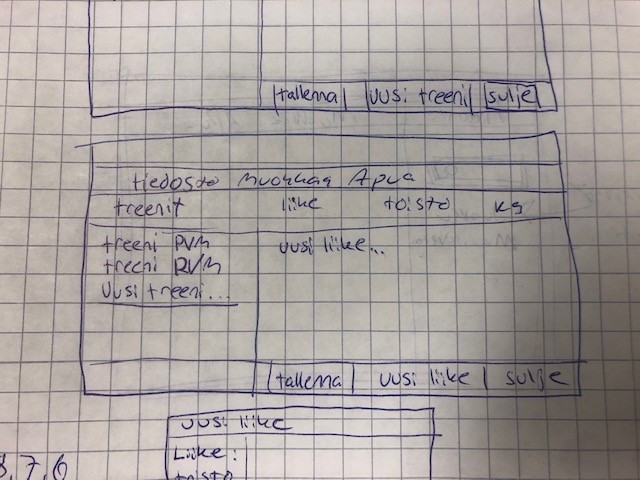 tallenna uusi treeni sulje
tiedosto muokkaa Apua
treenit liike toisto kg
treeni PVM
treeni PVM
uusi treeni...
uusi liike...
tallenna uusi liike sulje
uusi liike
Liike:
toisto
8,7,6